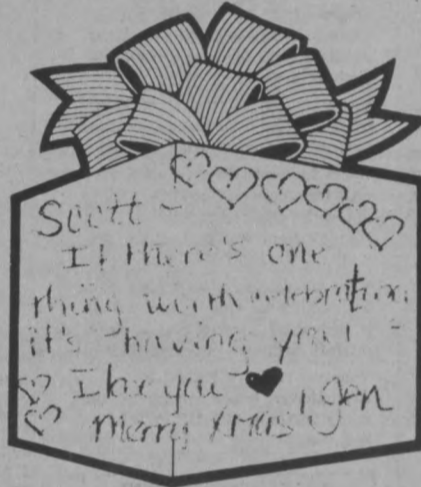 Scott -
If there's one
thing worth celebration
it's having you!
I love you, Jen
Merry Xmas!